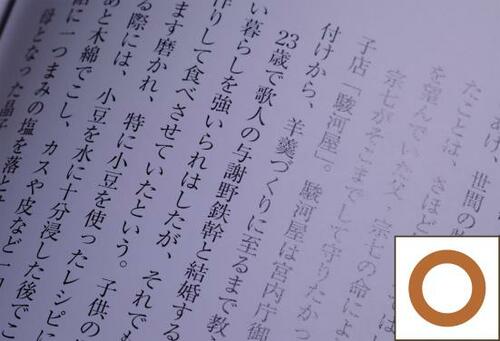 あけ、世間の
たことは、さほど
を望んでいた父・宗七の命によ
宗七がそこまでして守りたかっ
子店「駿河屋」。駿河屋は宮内庁御
付けから、羊羹づくりに至るまで教
23歳で歌人の与謝野鉄幹と結婚する
い暮らしを強いられはしたが、それでも
作りして食べさせていたという。子供の
ます磨かれ、特に小豆を使ったレシピに
る際には、小豆を水に十分浸した後でこ
あと木綿でこし、カスや皮など一切
話に一つまみの塩を落とす
母となった晶子